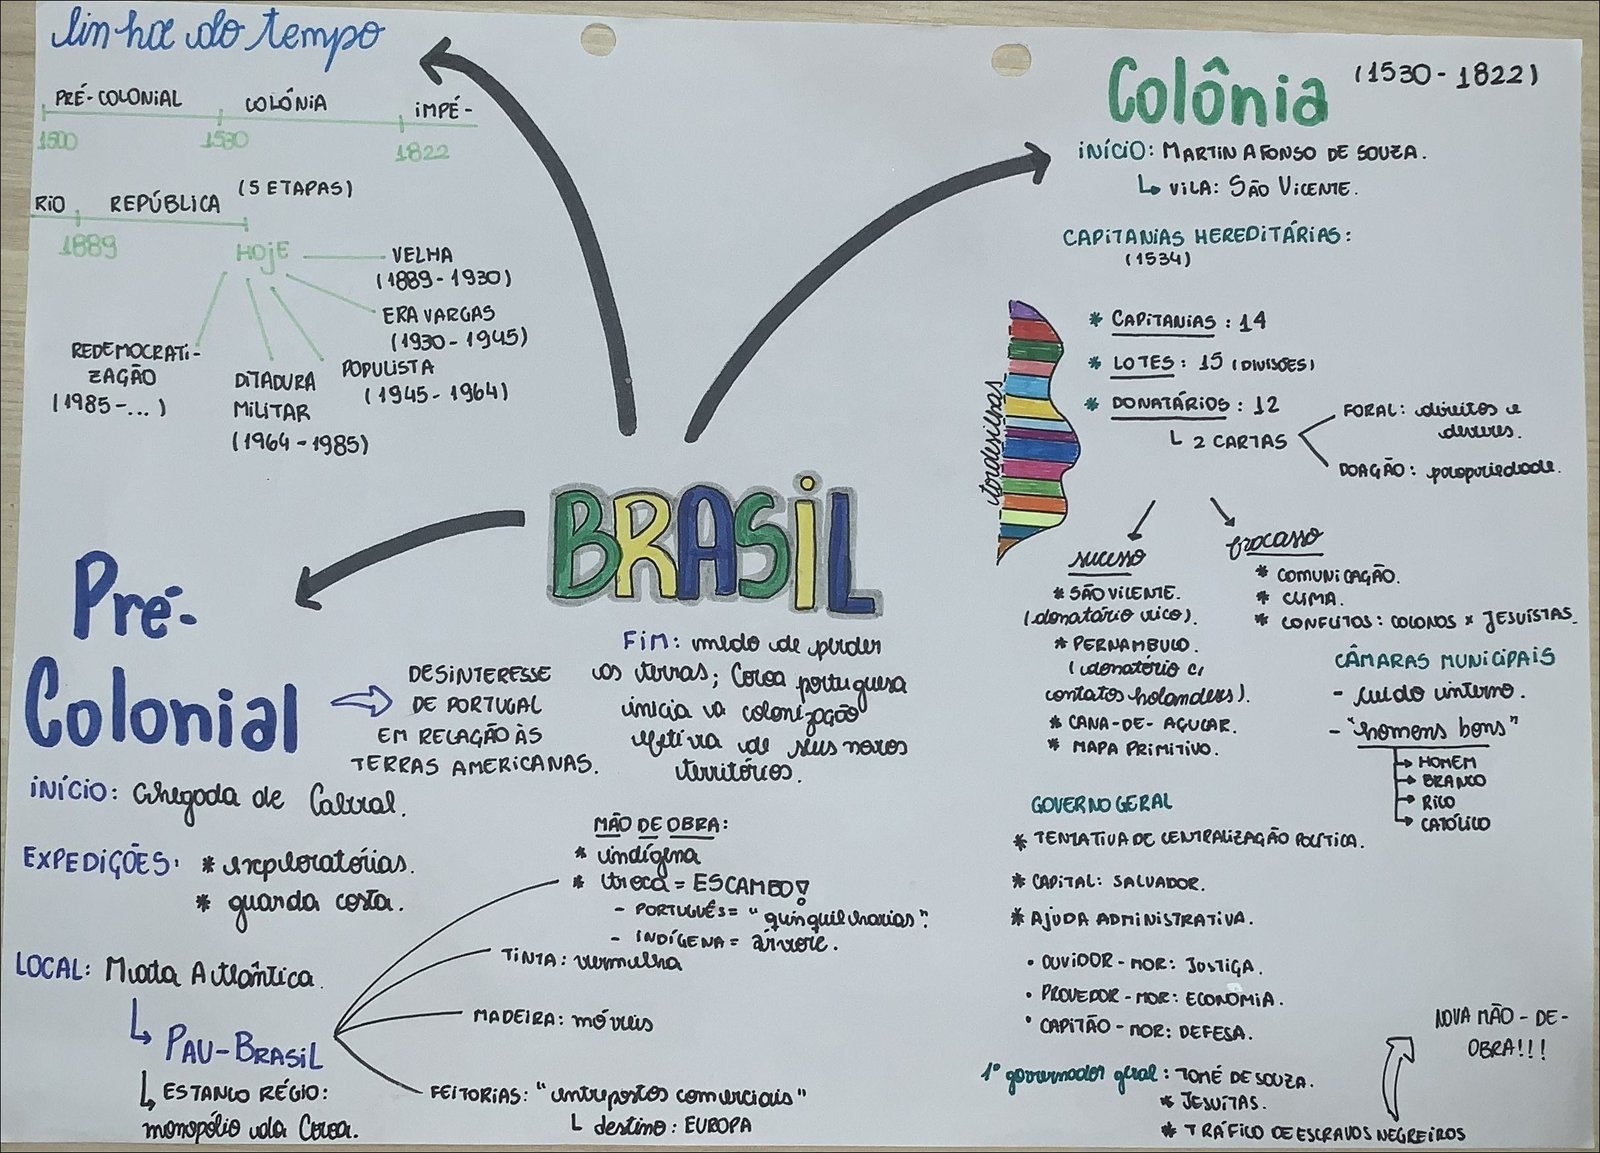 linha do tempo
PRÉ-COLONIAL COLÔNIA IMPÉ-
1500 1530 1822
RIO REPÚBLICA (5 ETAPAS)
1889 HOJE
VELHA
(1889-1930)
ERA VARGAS
(1930-1945)
POPULISTA
(1945-1964)
DITADURA
MILITAR
(1964-1985)
REDEMOCRATI-
ZAÇÃO
(1985-...)
BRASIL
Pré-
Colonial
DESINTERESSE
DE PORTUGAL
EM RELAÇÃO ÀS
TERRAS AMERICANAS.
FIM: medo de perder
as terras; Coroa portuguesa
inicia a colonização
efetiva de seus novos
territórios.
INÍCIO: Chegada de Cabral.
EXPEDIÇÕES: * exploratórias.
* guarda costa.
LOCAL: Mata Atlântica.
PAU-BRASIL
ESTANCO RÉGIO:
monopólio da Coroa.
MÃO DE OBRA:
* indígena
* troca = ESCAMBO!
- PORTUGUÊS = "quinquilharias".
- INDÍGENA = árvore.
TINTA: vermelha
MADEIRA: móveis
FEITORIAS: "entrepostos comerciais"
destino: EUROPA
Colônia (1530-1822)
INÍCIO: MARTIN AFONSO DE SOUZA.
VILA: SÃO VICENTE.
CAPITANIAS HEREDITÁRIAS:
(1534)
tordesilhas
* CAPITANIAS: 14
* LOTES: 15 (DIVISÕES)
* DONATÁRIOS: 12
2 CARTAS
FORAL: direitos e
deveres.
DOAÇÃO: propriedade.
sucesso
* SÃO VICENTE.
(donatário rico).
* PERNAMBUCO.
(donatário c/
contatos holandeses).
* CANA-DE-AÇUCAR.
* MAPA PRIMITIVO.
fracasso
* COMUNICAÇÃO.
* CLIMA.
* CONFLITOS: COLONOS x JESUÍSTAS.
CÂMARAS MUNICIPAIS
- cuido interno.
- "homens bons"
HOMEM
BRANCO
RICO
CATÓLICO
GOVERNO GERAL
* TENTATIVA DE CENTRALIZAÇÃO POLÍTICA.
* CAPITAL: SALVADOR.
* AJUDA ADMINISTRATIVA.
• OUVIDOR-MOR: JUSTIÇA.
• PROVEDOR-MOR: ECONOMIA.
• CAPITÃO-MOR: DEFESA.
1º governador geral: TOMÉ DE SOUZA.
* JESUÍTAS.
* TRÁFICO DE ESCRAVOS NEGREIROS
NOVA MÃO-DE-
OBRA!!!